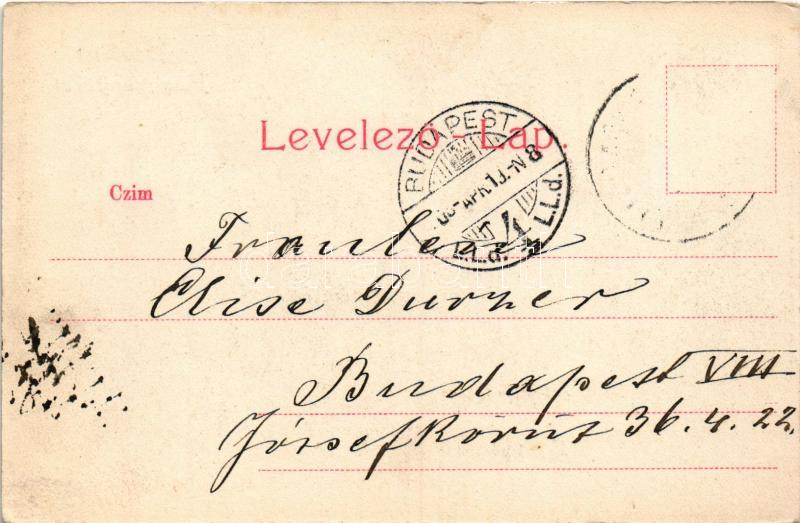 Levelező - Lap.
BUDAPEST
APR. 13. N 8
4
L.L.d. L.L.d.
Czim
Fraulein
Elise Durzer
Budapest VIII
József körut 36. 4. 22.